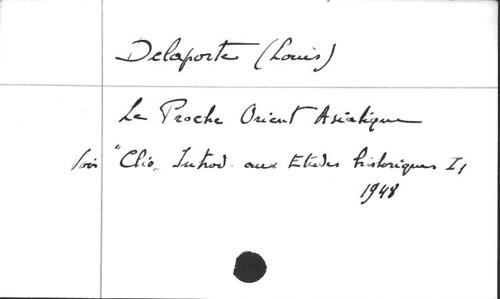 Delaporte (Louis)
Le Proche Orient Asiatique
Voir "Clio" Introd. aux Etudes historiques I,
1948